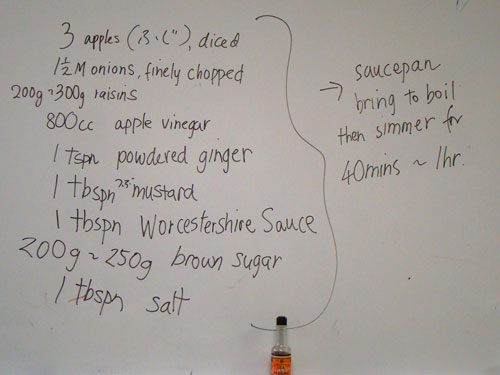 3 apples (ふ.じ), diced
1½ M onions, finely chopped
200g~300g raisins
800cc apple vinegar
1 tspn powdered ginger
1 tbspn mustard
1 tbspn Worcestershire Sauce
200g~250g brown sugar
1 tbspn salt
→ saucepan
bring to boil
then simmer for
40mins ~ 1hr.